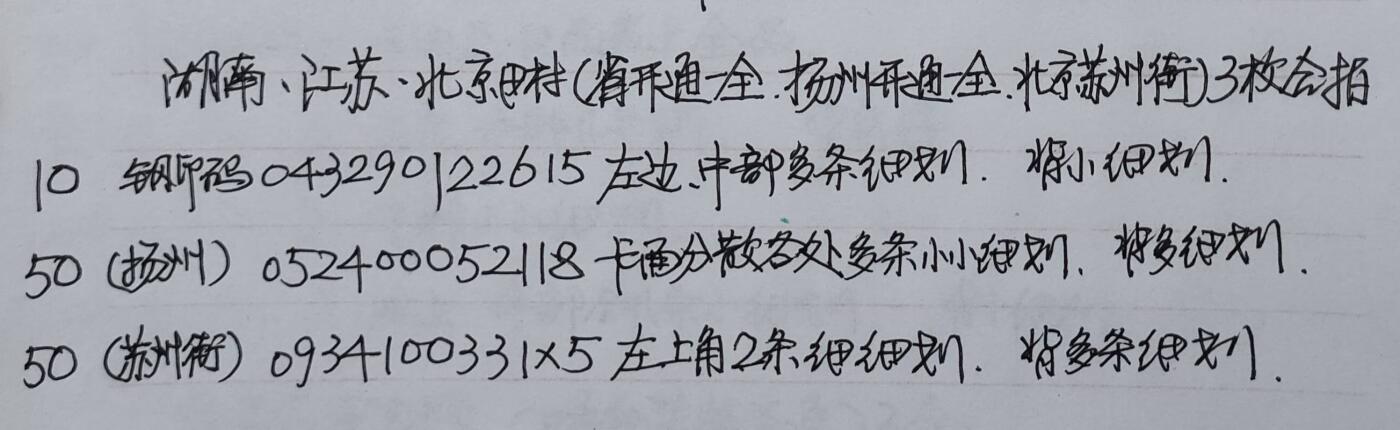 湖南、江苏、北京田村(省开通一全.扬州开通一全.北京苏州街)3枚合拍
10 钢印码043290122615左边、中部多条细划. 背小细划.
50 (扬州) 052400052118卡面分散各处多条小小细划. 背多细划.
50 (苏州街) 0934100331x5左上角2条细细划. 背多条细划.